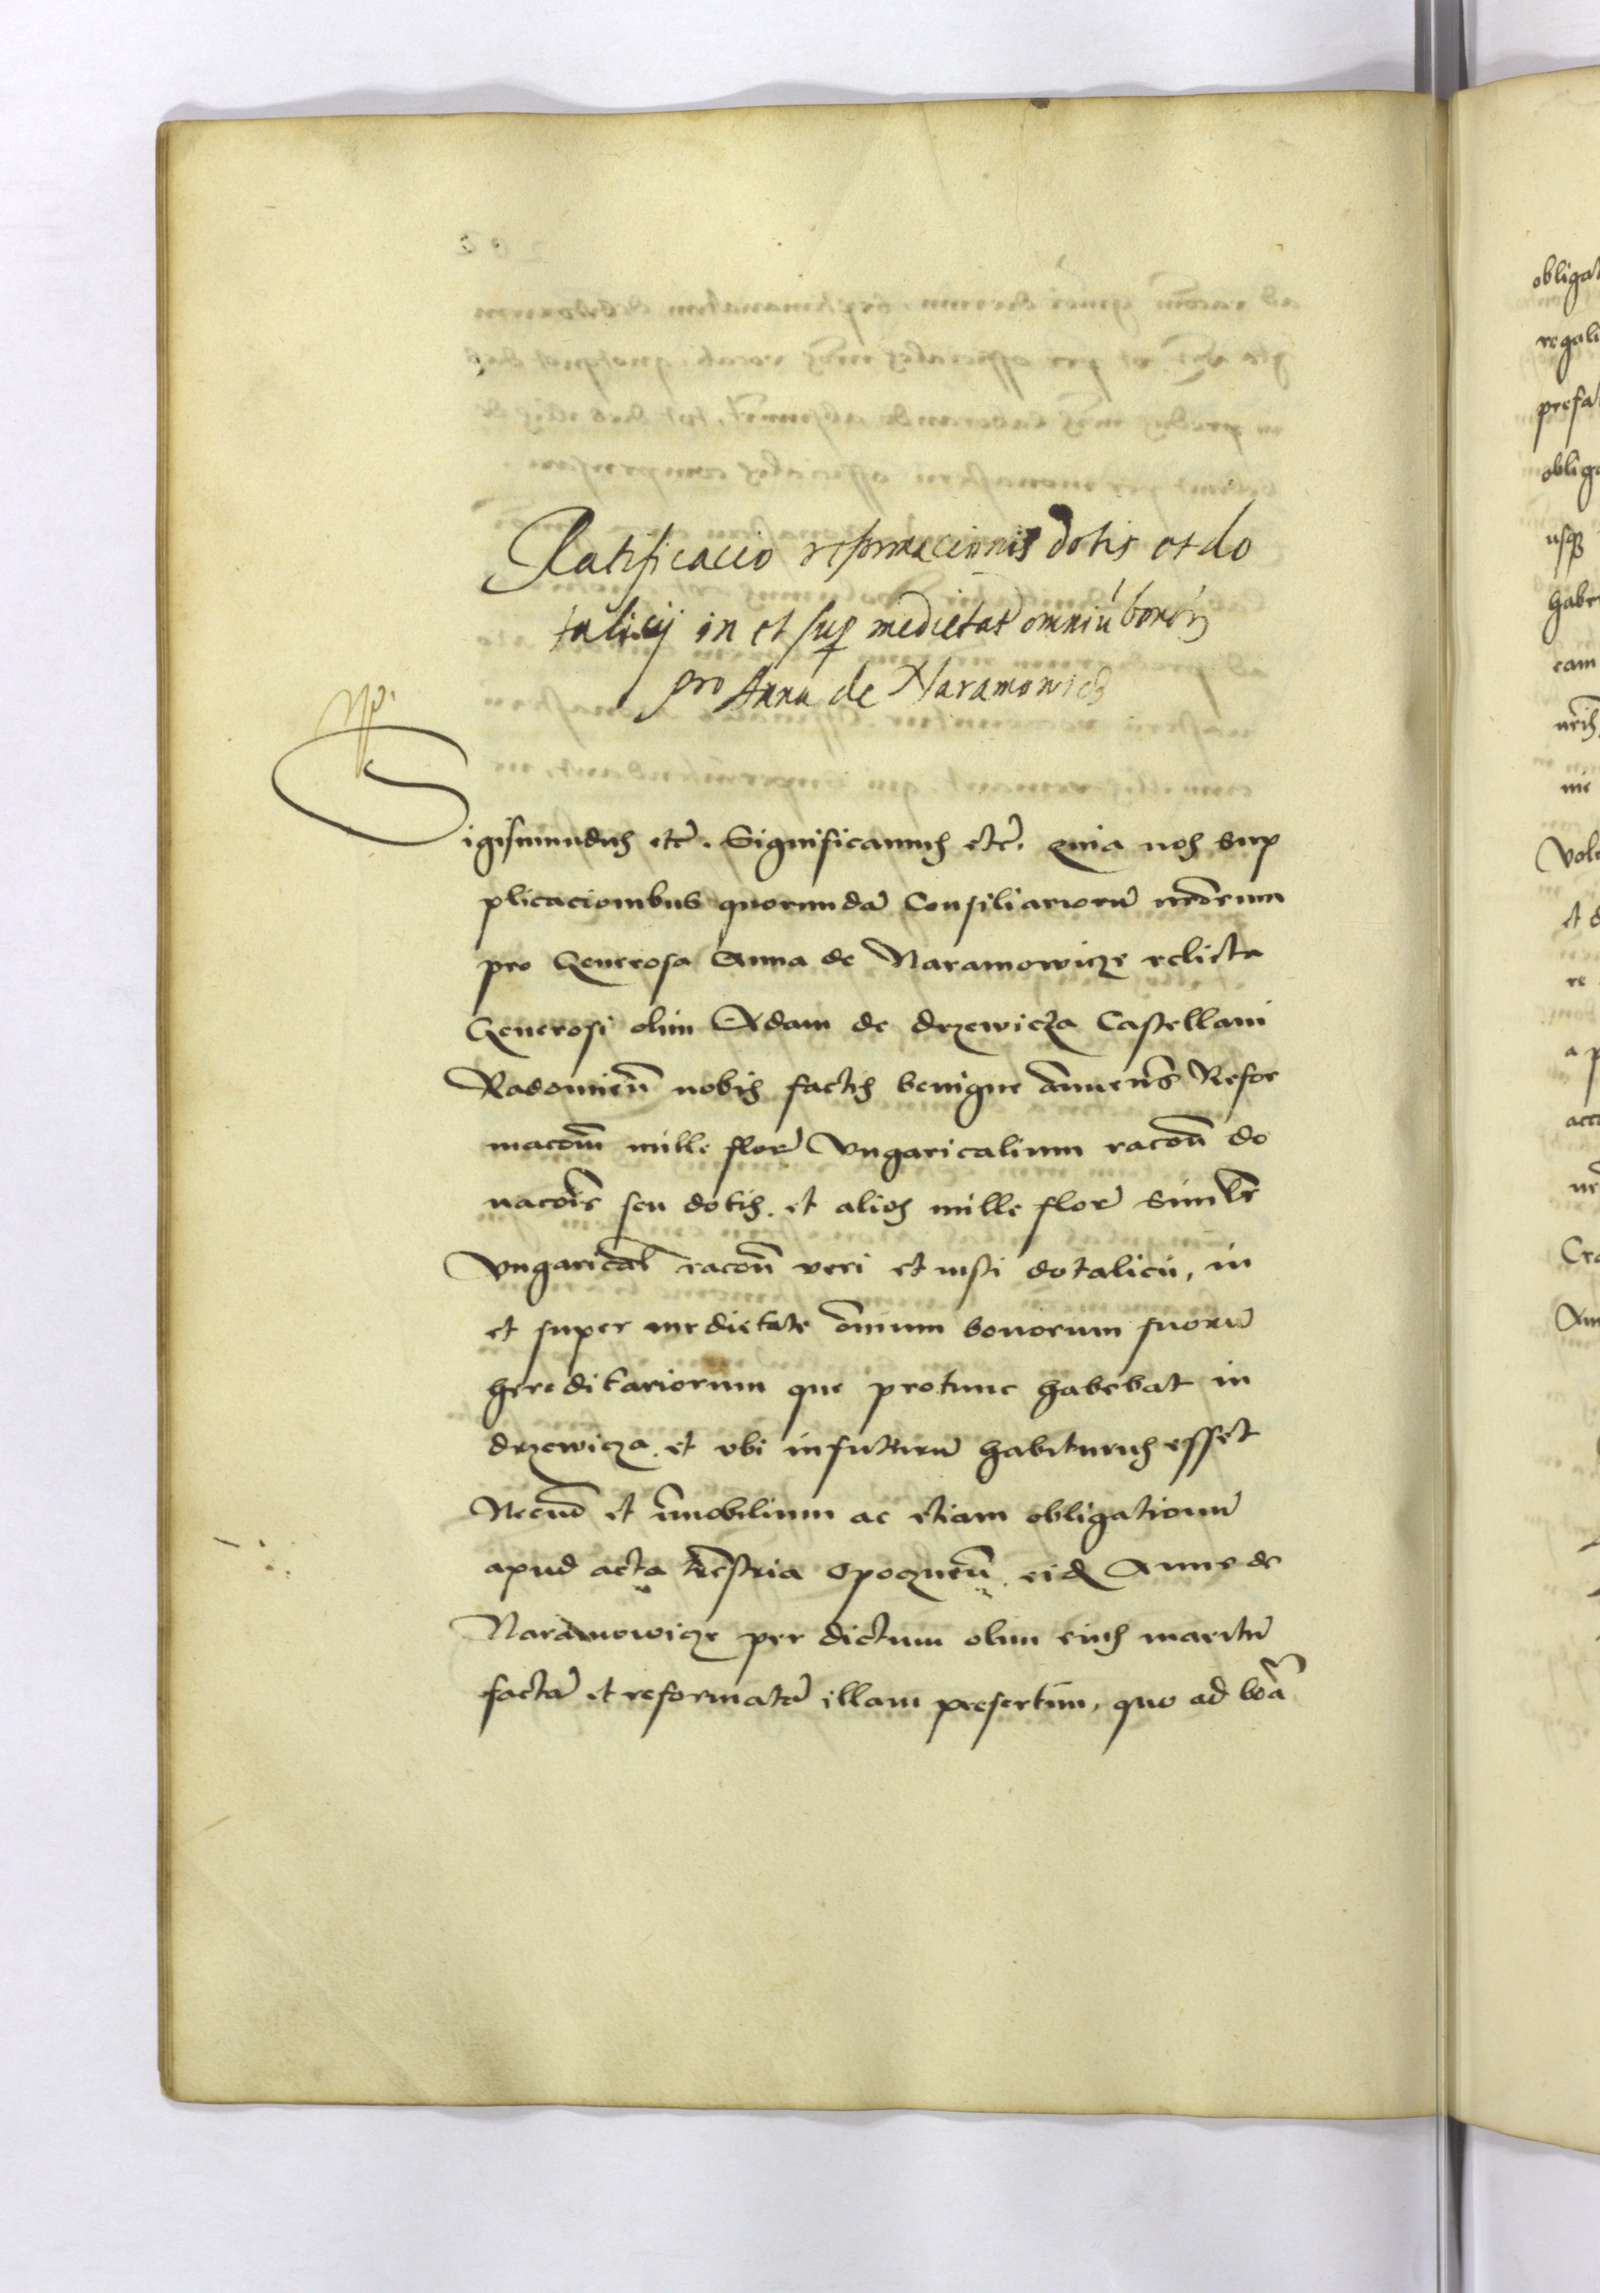 Ratificacio reformacionis dotis et do
talicij in et sup medietat omniu bonor
pro Anna de Naramowicz
Sigismundus etc. Significamus etc. quia nos Sup
plicacionibus quorunda Consiliarioru nrorum
pro Generosa Anna de Naramowicze relicta
Generosi olim Adam de drzewicza Castellani
Radomien nobis factis benigne annuens Refor
macom mille flor Vngaricalium racon do
nacois seu dotis. et alios mille flor simlr
Vngarical racon veri et iusti dotalicii, in
et super medietate omium bonorum suoru
hereditariorum que protunc habebat in
drzewicza. et vbi infuturu habiturus esset
Necno et imobilium ac etiam obligationu
apud acta trestria Opoznen. eid Anne de
Naramowicze per dictum olim eius maritu
facta et reformata illam presertim, quo ad boa
obligat
regali
prefa
oblig
usq
habe
eam
nris
me
Vol
et d
re
a p
acc
nr
Cra
Ann